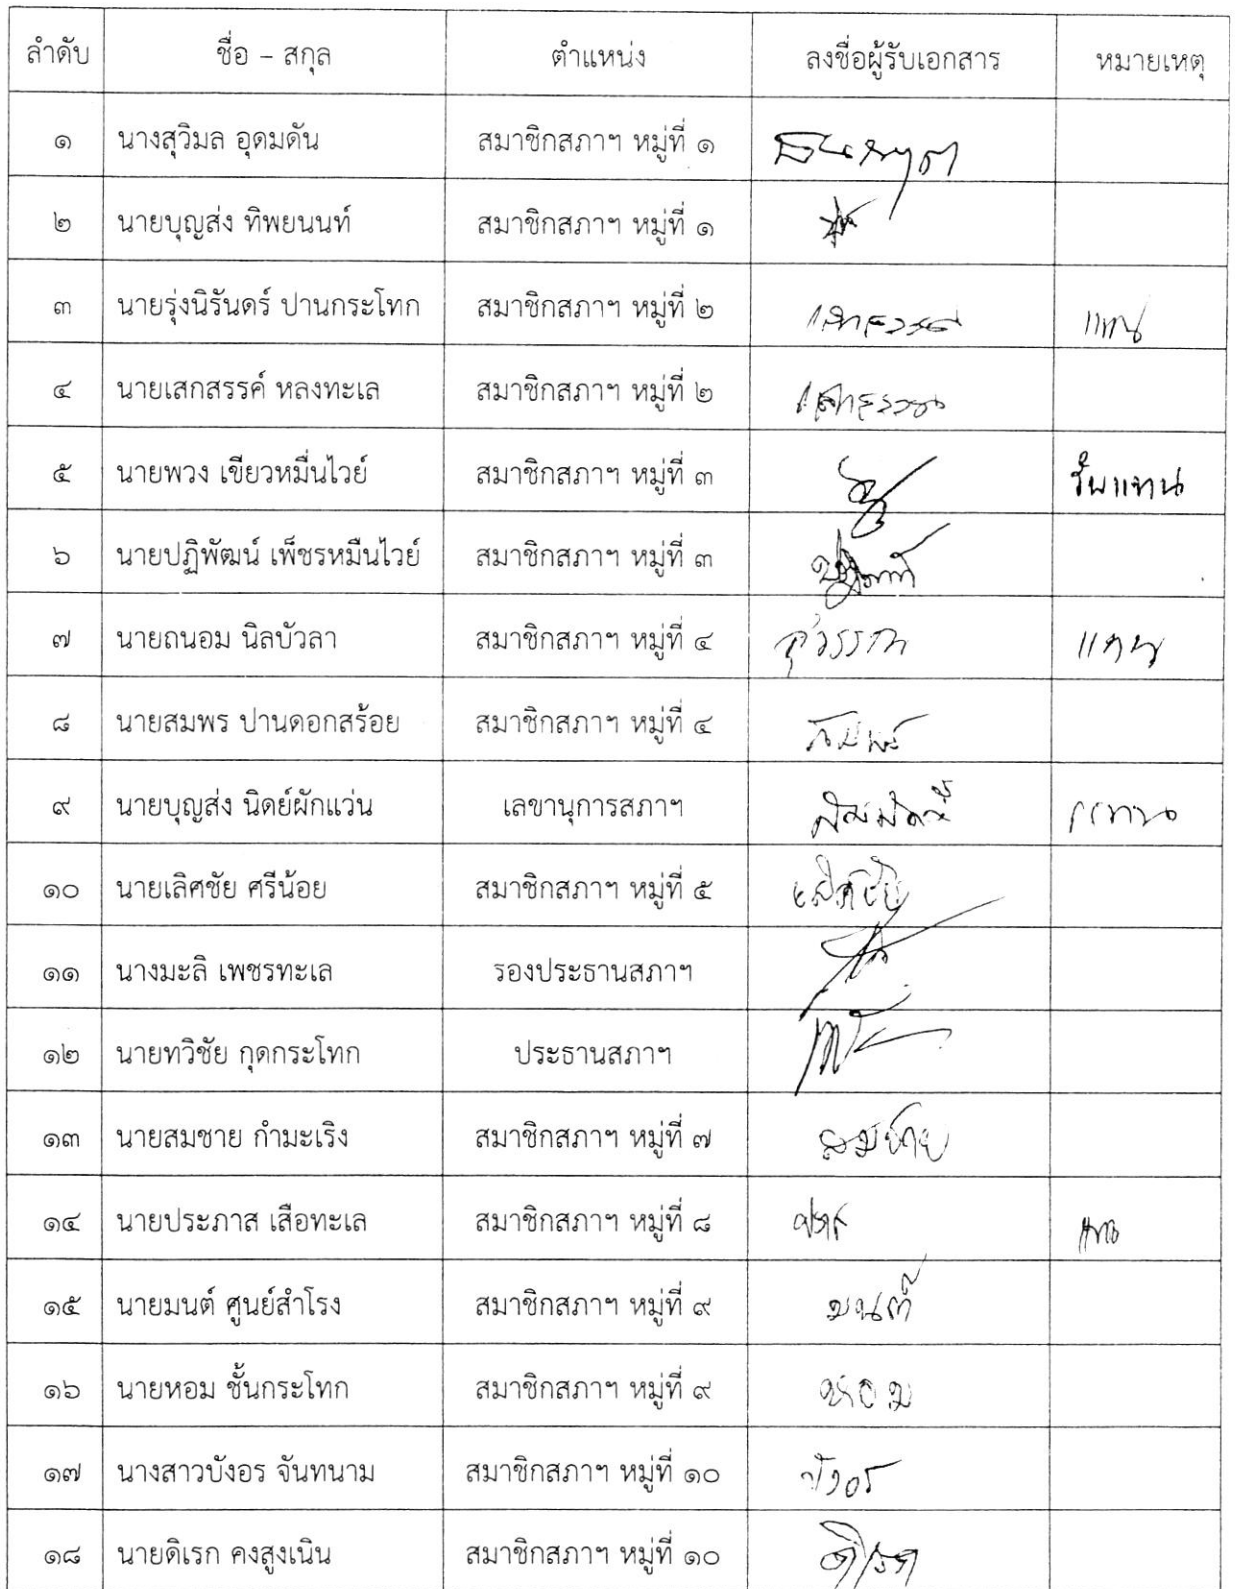 ลำดับ ชื่อ – สกุล ตำแหน่ง ลงชื่อผู้รับเอกสาร หมายเหตุ
๑ นางสุวิมล อุดมดัน สมาชิกสภาฯ หมู่ที่ ๑
๒ นายบุญส่ง ทิพยนนท์ สมาชิกสภาฯ หมู่ที่ ๑
๓ นายรุ่งนิรันดร์ ปานกระโทก สมาชิกสภาฯ หมู่ที่ ๒ แทน
๔ นายเสกสรรค์ หลงทะเล สมาชิกสภาฯ หมู่ที่ ๒
๕ นายพวง เขียวหมื่นไวย์ สมาชิกสภาฯ หมู่ที่ ๓ รับแทน
๖ นายปฏิพัฒน์ เพ็ชรหมืนไวย์ สมาชิกสภาฯ หมู่ที่ ๓
๗ นายถนอม นิลบัวลา สมาชิกสภาฯ หมู่ที่ ๔ สุวรรณ แทน
๘ นายสมพร ปานดอกสร้อย สมาชิกสภาฯ หมู่ที่ ๔ สมพร
๙ นายบุญส่ง นิดย์ผักแว่น เลขานุการสภาฯ แทน
๑๐ นายเลิศชัย ศรีน้อย สมาชิกสภาฯ หมู่ที่ ๕ เลิศชัย
๑๑ นางมะลิ เพชรทะเล รองประธานสภาฯ
๑๒ นายทวิชัย กุดกระโทก ประธานสภาฯ
๑๓ นายสมชาย กำมะเริง สมาชิกสภาฯ หมู่ที่ ๗ สมชาย
๑๔ นายประภาส เสือทะเล สมาชิกสภาฯ หมู่ที่ ๘ แทน
๑๕ นายมนต์ ศูนย์สำโรง สมาชิกสภาฯ หมู่ที่ ๙ มนต์
๑๖ นายหอม ชั้นกระโทก สมาชิกสภาฯ หมู่ที่ ๙ หอม
๑๗ นางสาวบังอร จันทนาม สมาชิกสภาฯ หมู่ที่ ๑๐ บังอร
๑๘ นายดิเรก คงสูงเนิน สมาชิกสภาฯ หมู่ที่ ๑๐ ดิเรก